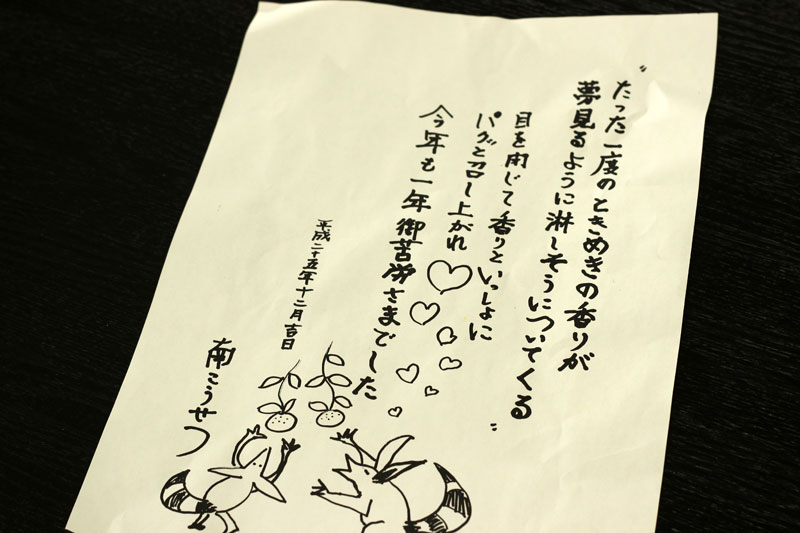 〝たった一度のときめきの香りが
夢見るように淋しそうについてくる〟
目を閉じて香りといっしょに
パクッと召し上がれ
今年も一年御苦労さまでした
平成二十五年十二月吉日
南こうせつ